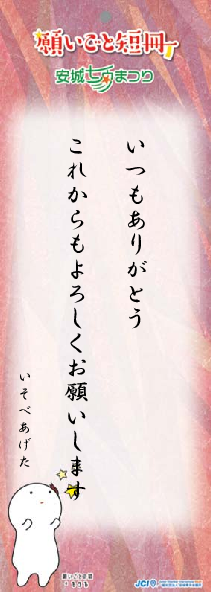 願いごと短冊
安城七夕まつり
いつもありがとう
これからもよろしくお願いします
いそべあげた
JCI